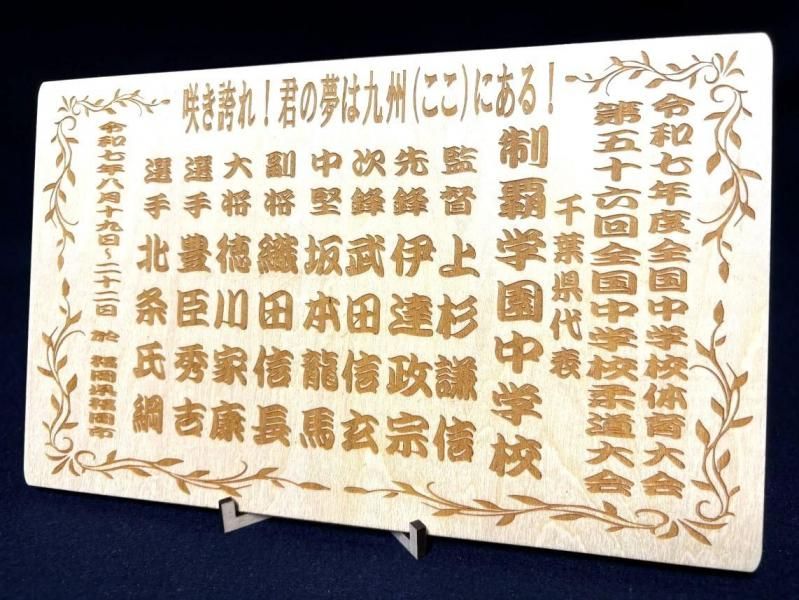 咲き誇れ！君の夢は九州(ここ)にある！
令和七年度全国中学校体育大会
第五十六回全国中学校柔道大会
千葉県代表
制覇学園中学校
監督 上杉謙信
先鋒 伊達政宗
次鋒 武田信玄
中堅 坂本龍馬
副将 織田信長
大将 徳川家康
選手 豊臣秀吉
選手 北条氏綱
令和七年八月十九日～二十二日 於 福岡県福岡市